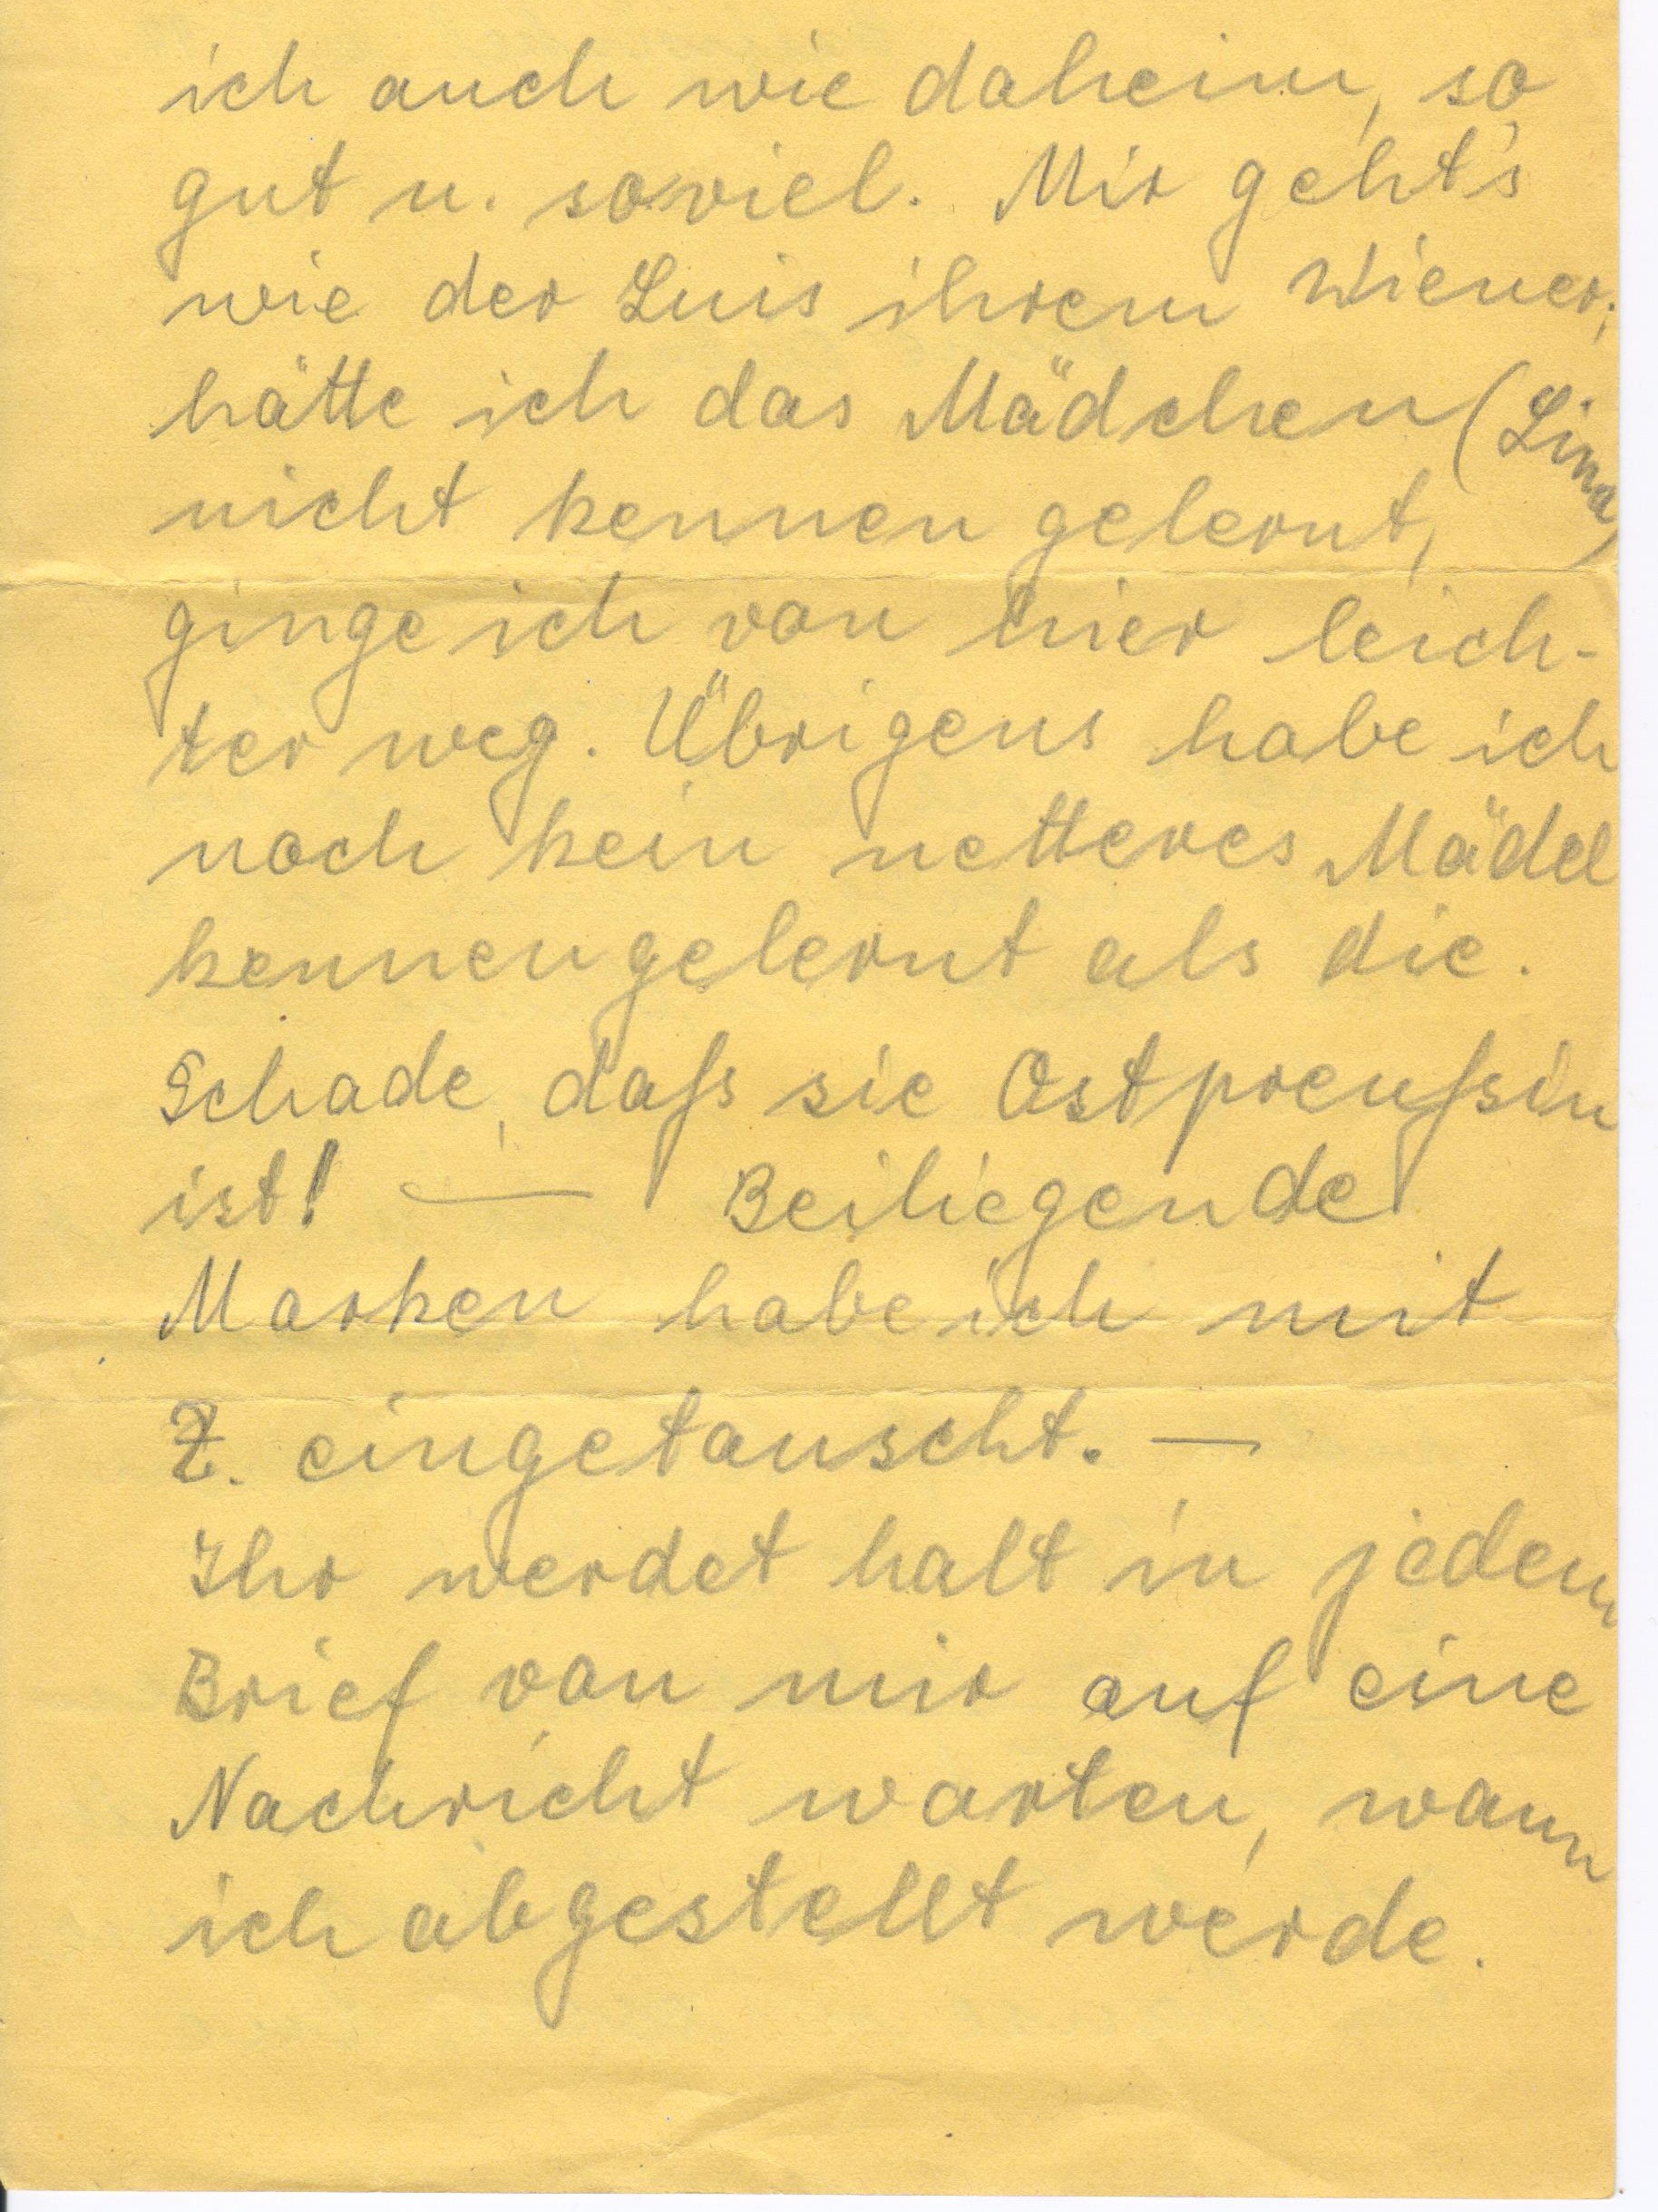 ich auch wie daheim, so
gut u. soviel. Mir geht's
wie der Luis ihrem Wiener;
hätte ich das Mädchen (Lina)
nicht kennen gelernt,
ginge ich von hier leich-
ter weg. Übrigens habe ich
noch kein netteres Mädel
kennengelernt als die.
Schade, dass sie Ostpreussin
ist! — Beiliegende
Marken habe ich mit
Z. eingetauscht. —
Ihr werdet halt in jedem
Brief von mir auf eine
Nachricht warten, wann
ich abgestellt werde.